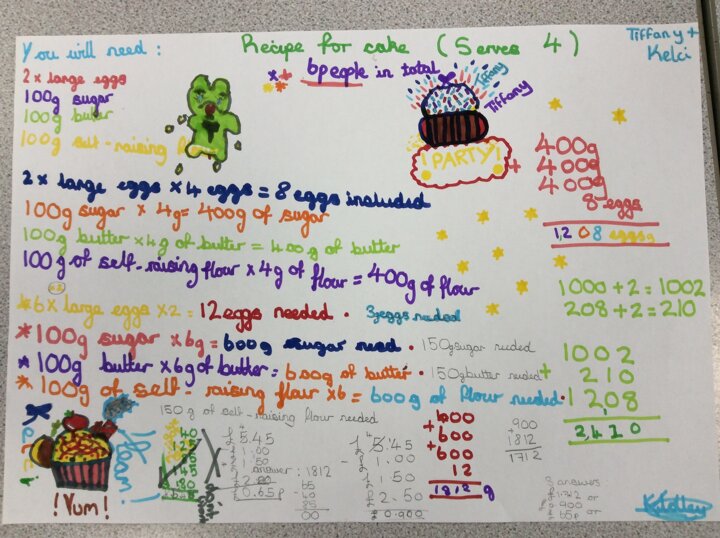 You will need:
Recipe for cake (Serves 4)
Tiffany +
Kelci
2 x large eggs
100g sugar
100g butter
100g self-raising
6people in total
Tiffany
Tiffany
! PARTY!
+ 400g
400g
400g
8 eggs
1,208 eggsg
2 x large eggs x 4 eggs = 8 eggs included
100g sugar x 4g = 400g of sugar
100g butter x 4g of butter = 400g of butter
100g of self-raising flour x 4g of flour = 400g of flour
1000+2=1002
208+2=210
*6 x large eggs x2 = 12eggs needed • 3eggs needed
*100g sugar x 6g = 600g sugar need • 150g sugar needed
*100g butter x 6g of butter = 600g of butter • 150g butter needed
*100g of self-raising flour x6 = 600g of flour needed •
150 g of self-raising flour needed
1002
+ 210
1,208
2,410
£5.45
1.00
1.50
answer: 1812
£0.65p
£5.45
- £1.00
£1.50
£2.50
£0.900
600
+600
+600
12
1812 g
+900
1812
1712
answers
Yum!